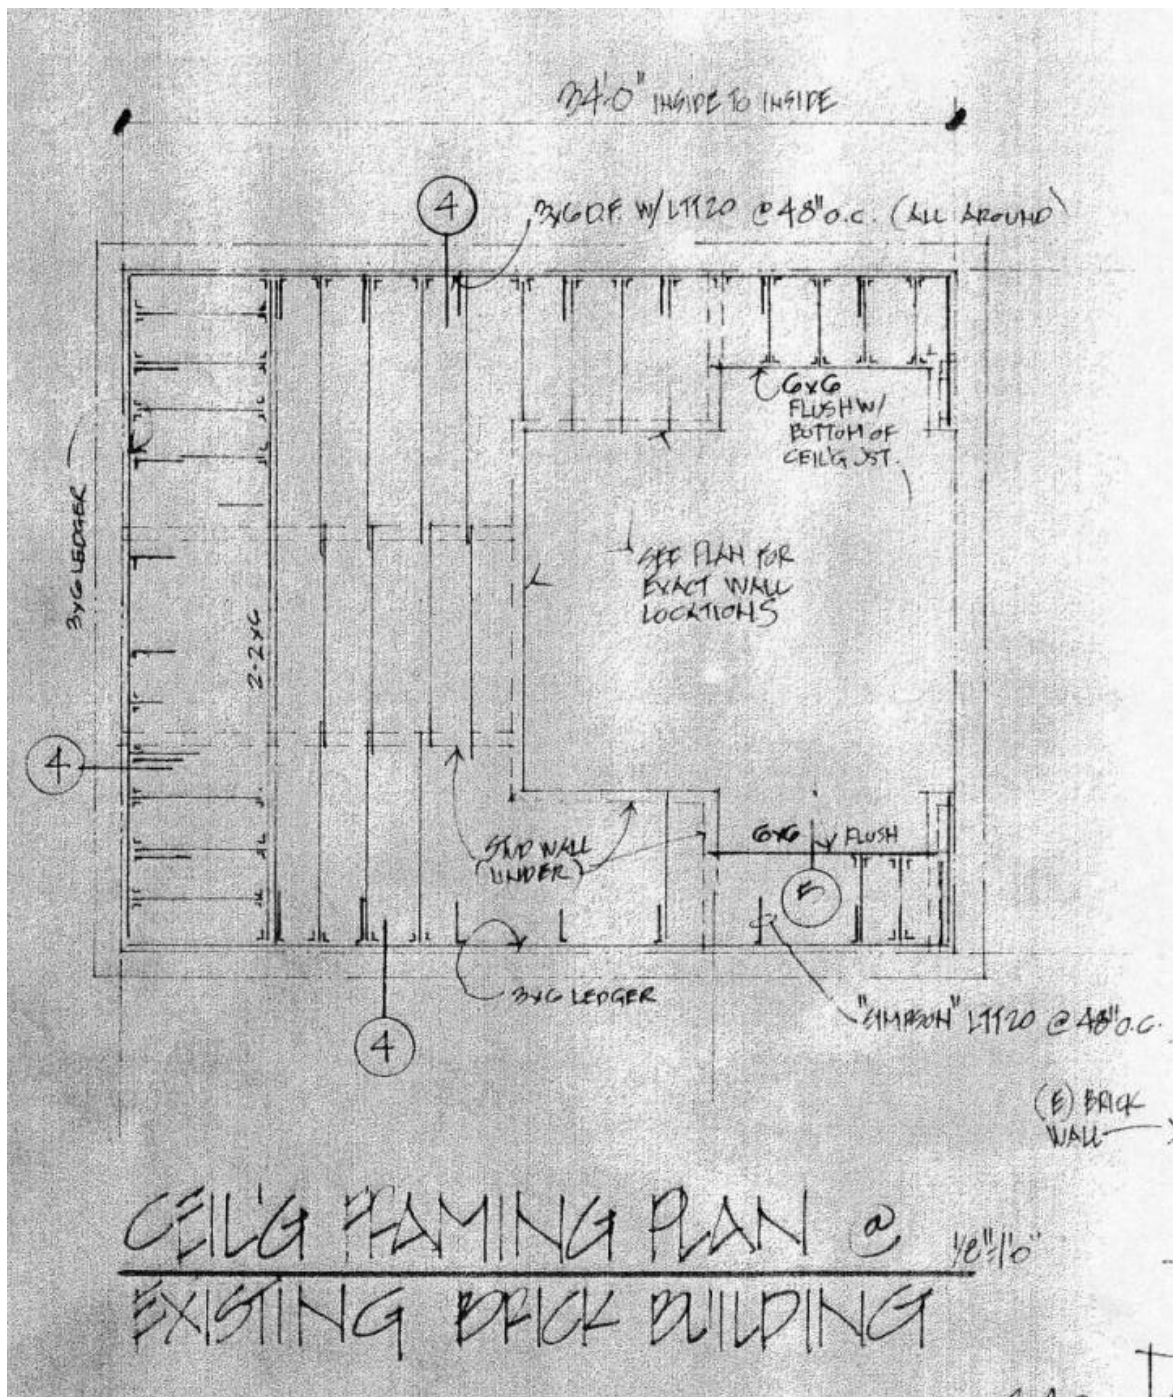 34'-0" INSIDE TO INSIDE
4
3x6 D.F. W/ LTT20 @ 48" o.c. (ALL AROUND)
6x6
FLUSH W/
BOTTOM OF
CEIL'G JST.
3x6 LEDGER
2-2x6
SEE PLAN FOR
EXACT WALL
LOCATIONS
4
STUD WALL
(UNDER)
6x6 FLUSH
5
3x6 LEDGER
4
"SIMPSON" LTT20 @ 48" O.C.
(E) BRICK
WALL
CEIL'G FRAMING PLAN @ 1/8"=1'0"
EXISTING BRICK BUILDING